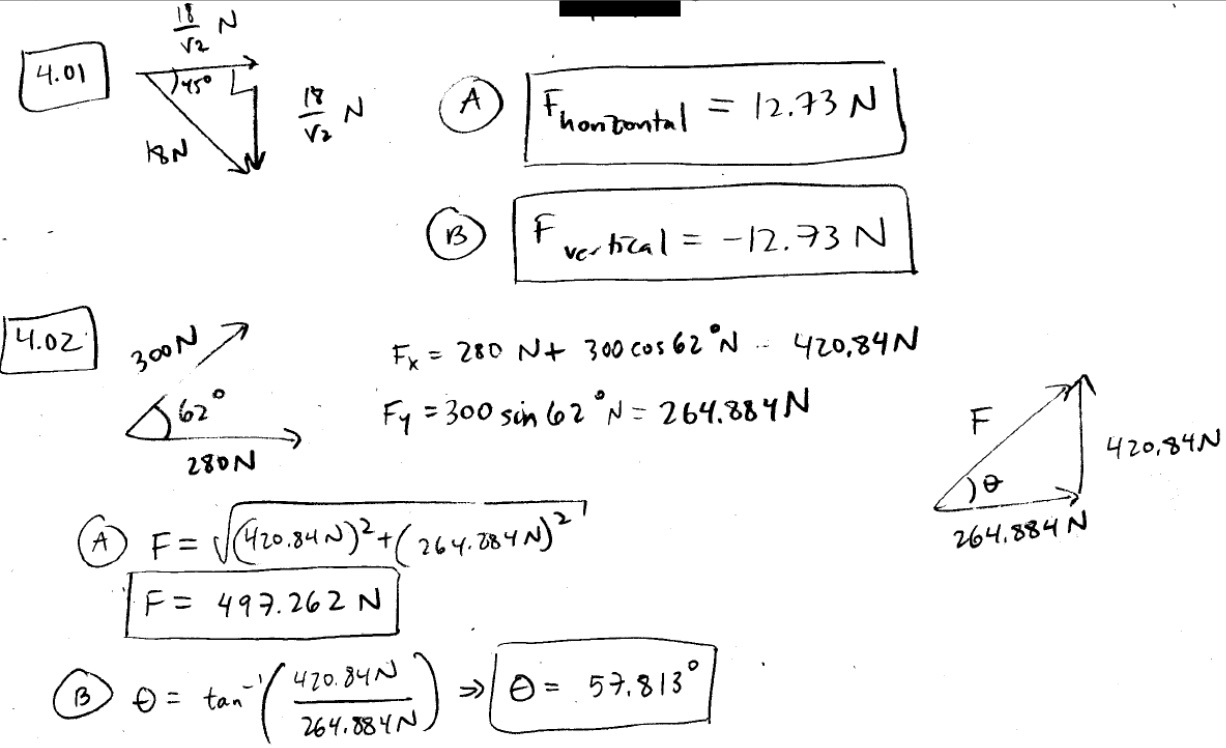 4.01
18/√2 N
45°
18/√2 N
18N
A F horizontal = 12.73 N
B F vertical = -12.73 N
4.02
300N
62°
280N
Fx = 280 N + 300 cos 62° N = 420.84N
Fy = 300 sin 62° N = 264.884N
F
θ
420.84N
264.884N
A F = √(420.84N)² + (264.884N)²
F = 497.262 N
B θ = tan⁻¹(420.84N/264.884N) ⇒ θ = 57.813°